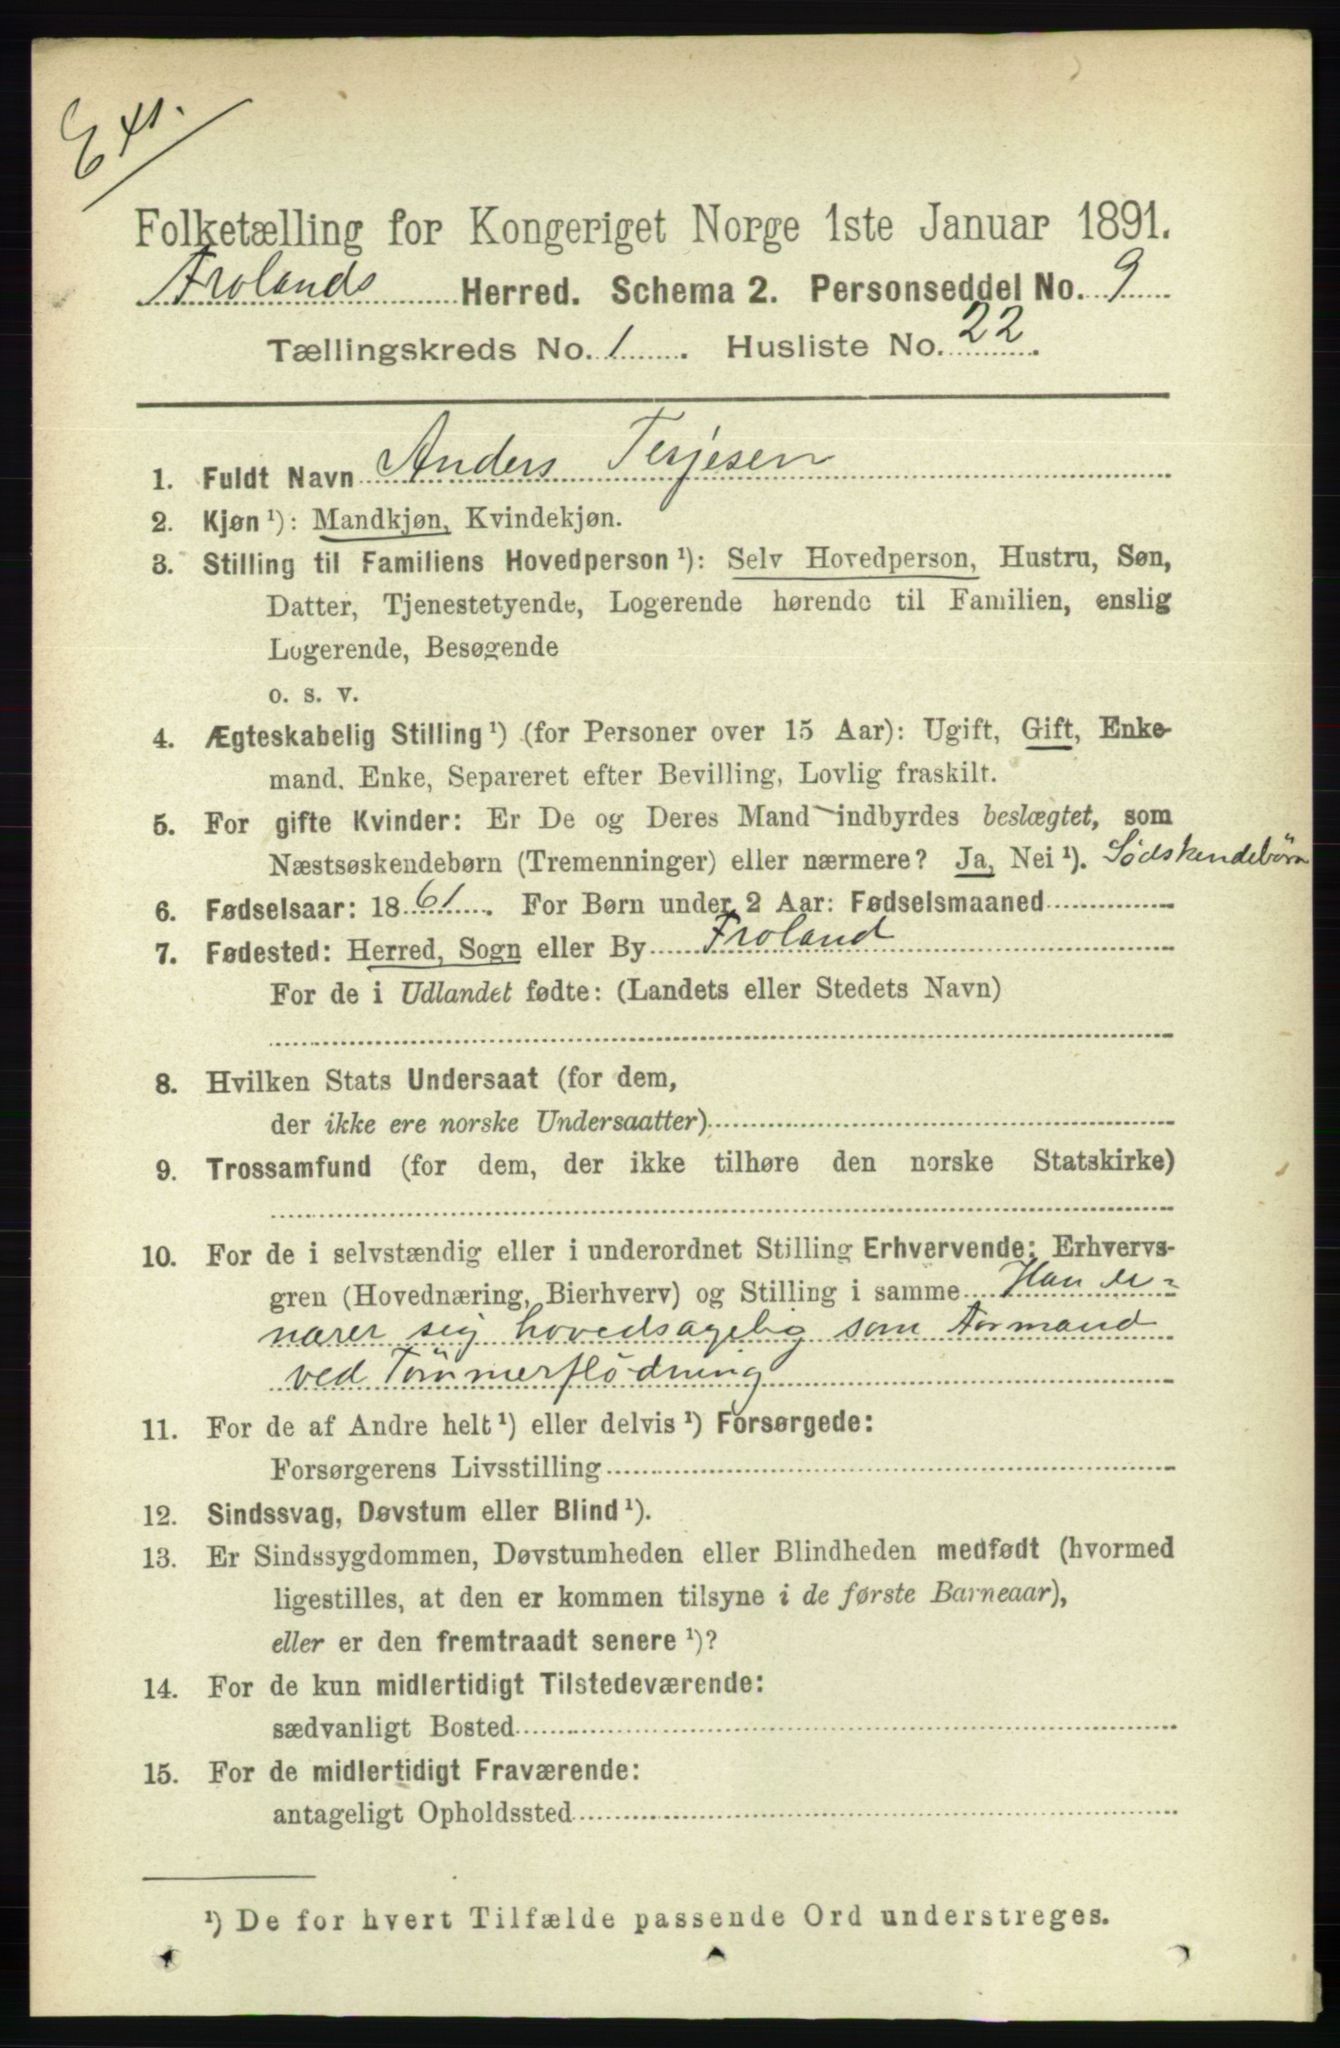 Ex.
Folketælling for Kongeriget Norge 1ste Januar 1891.
Frolands Herred. Schema 2. Personseddel No. 9
Tællingskreds No. 1. Husliste No. 22.
1. Fuldt Navn Anders Terjesen
2. Kjøn ¹): Mandkjøn, Kvindekjøn.
3. Stilling til Familiens Hovedperson ¹): Selv Hovedperson, Hustru, Søn,
Datter, Tjenestetyende, Logerende hørende til Familien, enslig
Logerende, Besøgende
o. s. v.
4. Ægteskabelig Stilling ¹) (for Personer over 15 Aar): Ugift, Gift, Enke-
mand, Enke, Separeret efter Bevilling, Lovlig fraskilt.
5. For gifte Kvinder: Er De og Deres Mand indbyrdes beslægtet, som
Næstsøskendebørn (Tremenninger) eller nærmere? Ja, Nei ¹). Södskendebörn
6. Fødselsaar: 1861. For Børn under 2 Aar: Fødselsmaaned
7. Fødested: Herred, Sogn eller By Froland
For de i Udlandet fødte: (Landets eller Stedets Navn)
8. Hvilken Stats Undersaat (for dem,
der ikke ere norske Undersaatter)
9. Trossamfund (for dem, der ikke tilhøre den norske Statskirke)
10. For de i selvstændig eller i underordnet Stilling Erhvervende: Erhvervs-
gren (Hovednæring, Bierhverv) og Stilling i samme Han er-
nærer sig hovedsagelig som Formand
ved Tömmerflödning
11. For de af Andre helt ¹) eller delvis ¹) Forsørgede:
Forsørgerens Livsstilling
12. Sindssvag, Døvstum eller Blind ¹).
13. Er Sindssygdommen, Døvstumheden eller Blindheden medfødt (hvormed
ligestilles, at den er kommen tilsyne i de første Barneaar),
eller er den fremtraadt senere ¹)?
14. For de kun midlertidigt Tilstedeværende:
sædvanligt Bosted
15. For de midlertidigt Fraværende:
antageligt Opholdssted
¹) De for hvert Tilfælde passende Ord understreges.